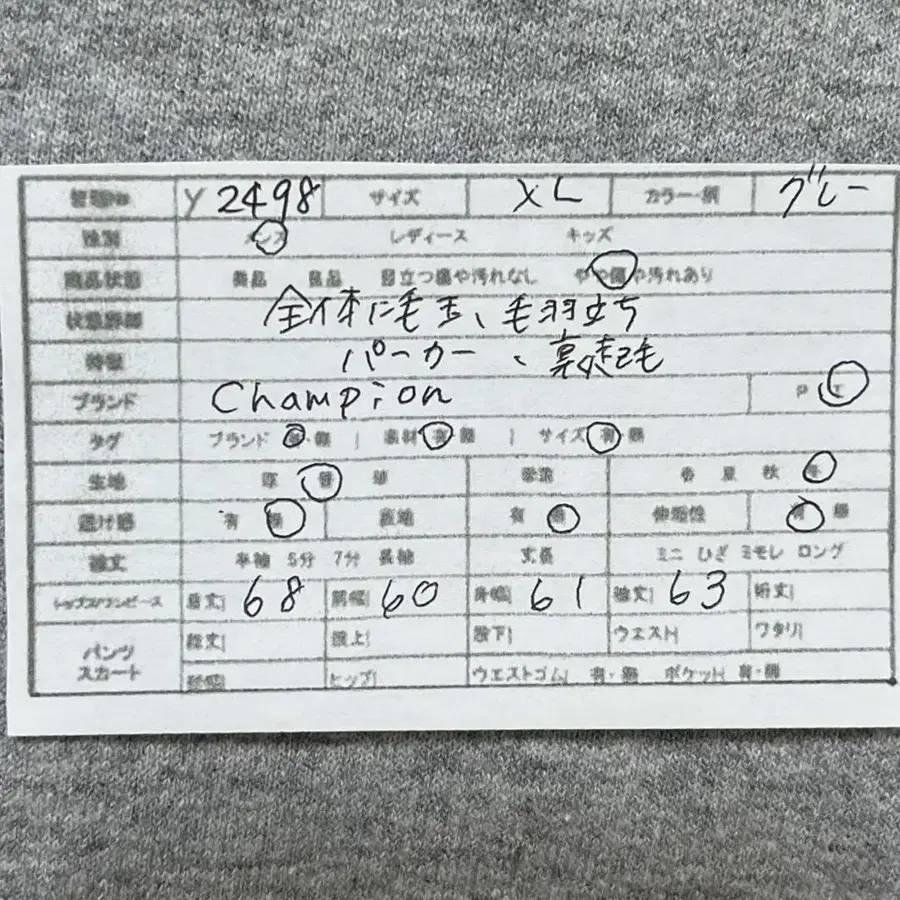 Y 2498 サイズ XL カラー・柄 グレー
性別 メンズ レディース キッズ
商品状態 美品 良品 目立つ傷や汚れなし やや傷や汚れあり
状態詳細 全体に毛玉、毛羽立ち
特徴 パーカー、裏起毛
ブランド Champion
タグ ブランド 有・無 | 素材 有・無 | サイズ 有・無
生地 厚 普 薄 春 夏 秋 冬
透け感 有 無 裏地 有 無 伸縮性 有 無
袖丈 半袖 5分 7分 長袖 丈長 ミニ ひざ ミモレ ロング
トップス/ワンピース 着丈| 68 肩幅| 60 身幅| 61 袖丈| 63 裄丈|
パンツ スカート 総丈| 股上| 股下| ウエスト| ワタリ|
裾幅| ヒップ| ウエストゴム| 有・無 ポケット| 有・無